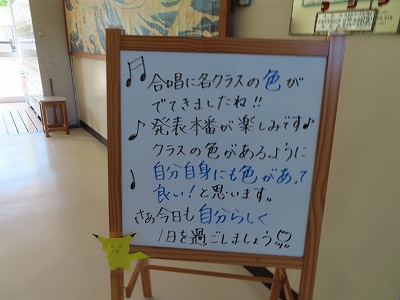 合唱に各クラスの色が
でてきましたね!!
発表本番が楽しみです♪
クラスの色があるように
自分自身にも色があって
良い!と思います。
さぁ今日も自分らしく
1日を過ごしましょう